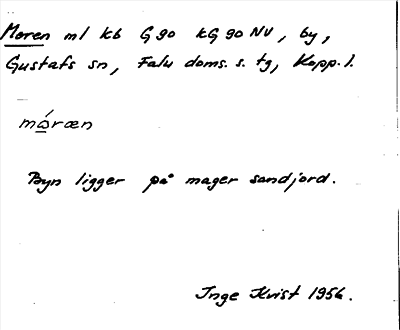 Moren ml kb G 90 kG 90 NV, by,
Gustafs sn, Falu doms. s. tg, Kopp. l.
mó̲ræn
Byn ligger på mager sandjord.
Inge Kvist 1956.